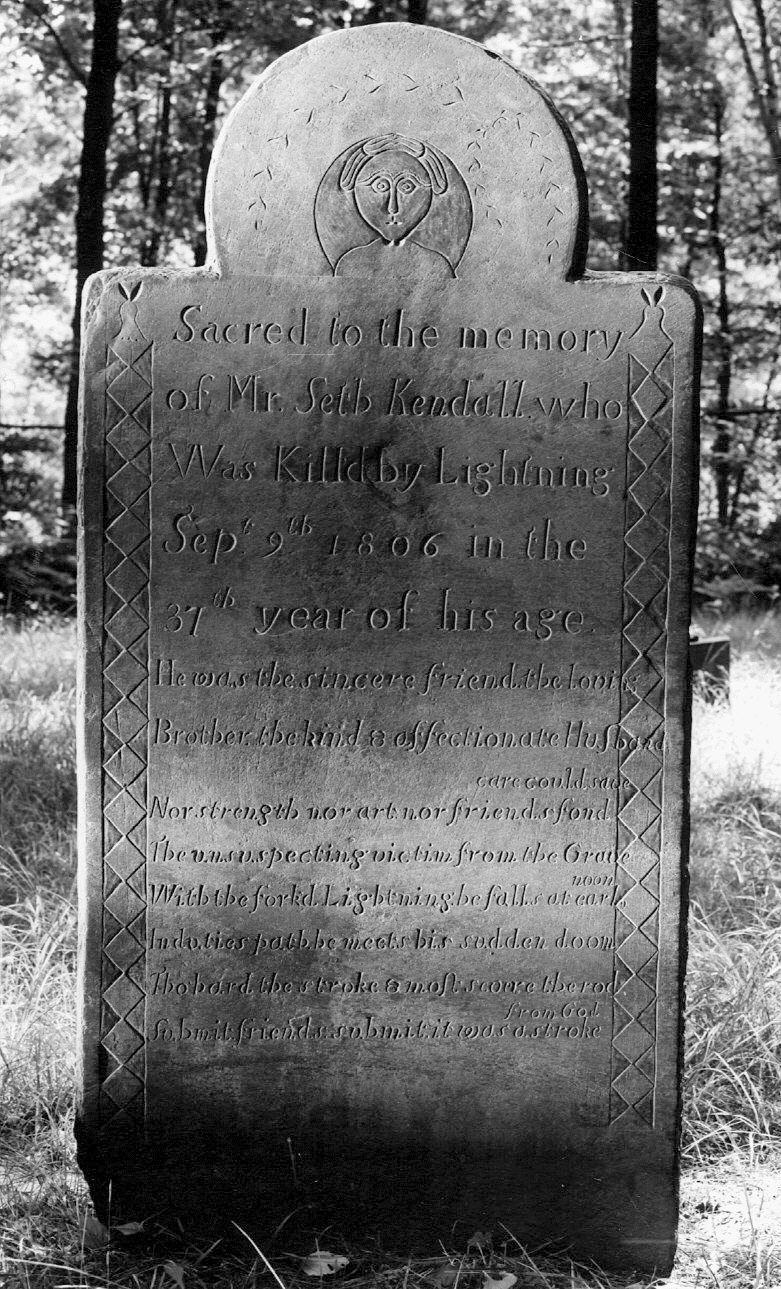 Sacred to the memory
of Mr. Seth Kendall, who
Was Kill'd by Lightning
Sept. 9th 1806 in the
37th year of his age.
He was the sincere friend, the loving
Brother, the kind & affectionate Huſband
care could save
Nor strength nor art, nor friends fond
The unsuspecting victim from the Grave
noon
With the fork'd Lightning he falls at early
In duties path he meets his sudden doom
Tho hard the stroke & moſt the rod
from God
Submit friends submit it was a stroke